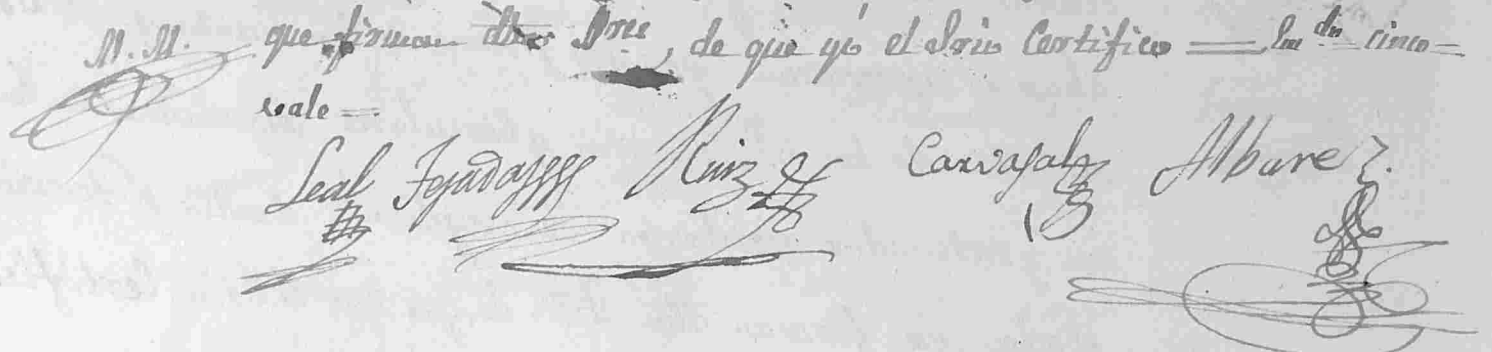 M. M. que firman dhos Sres, de que yó el Srio Certifico == Em.do cinco =
vale =
Leal Tejada Ruiz Carvajal Albarez.